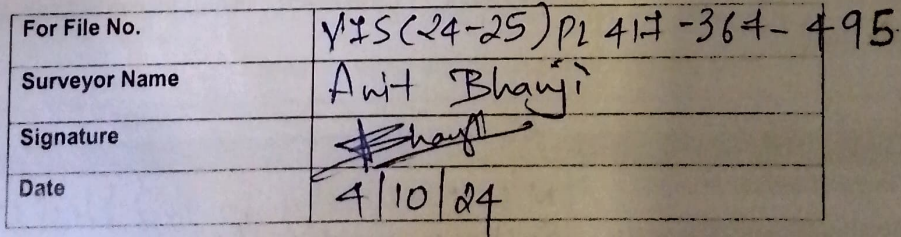 For File No. VIS(24-25)PL 417-364-495
Surveyor Name Anit Bhanji
Signature
Date 4/10/24